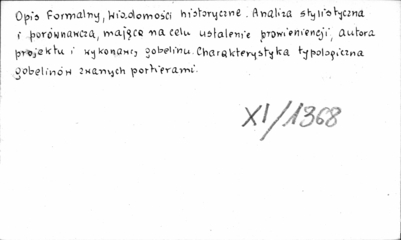 Opis formalny, wiadomości historyczne. Analiza stylistyczna
i porównawcza, mająca na celu ustalenie prowieniencji, autora
projektu i wykonawcy gobelinu. Charakterystyka typologiczna
gobelinów zwanych portierami.
XI/1368